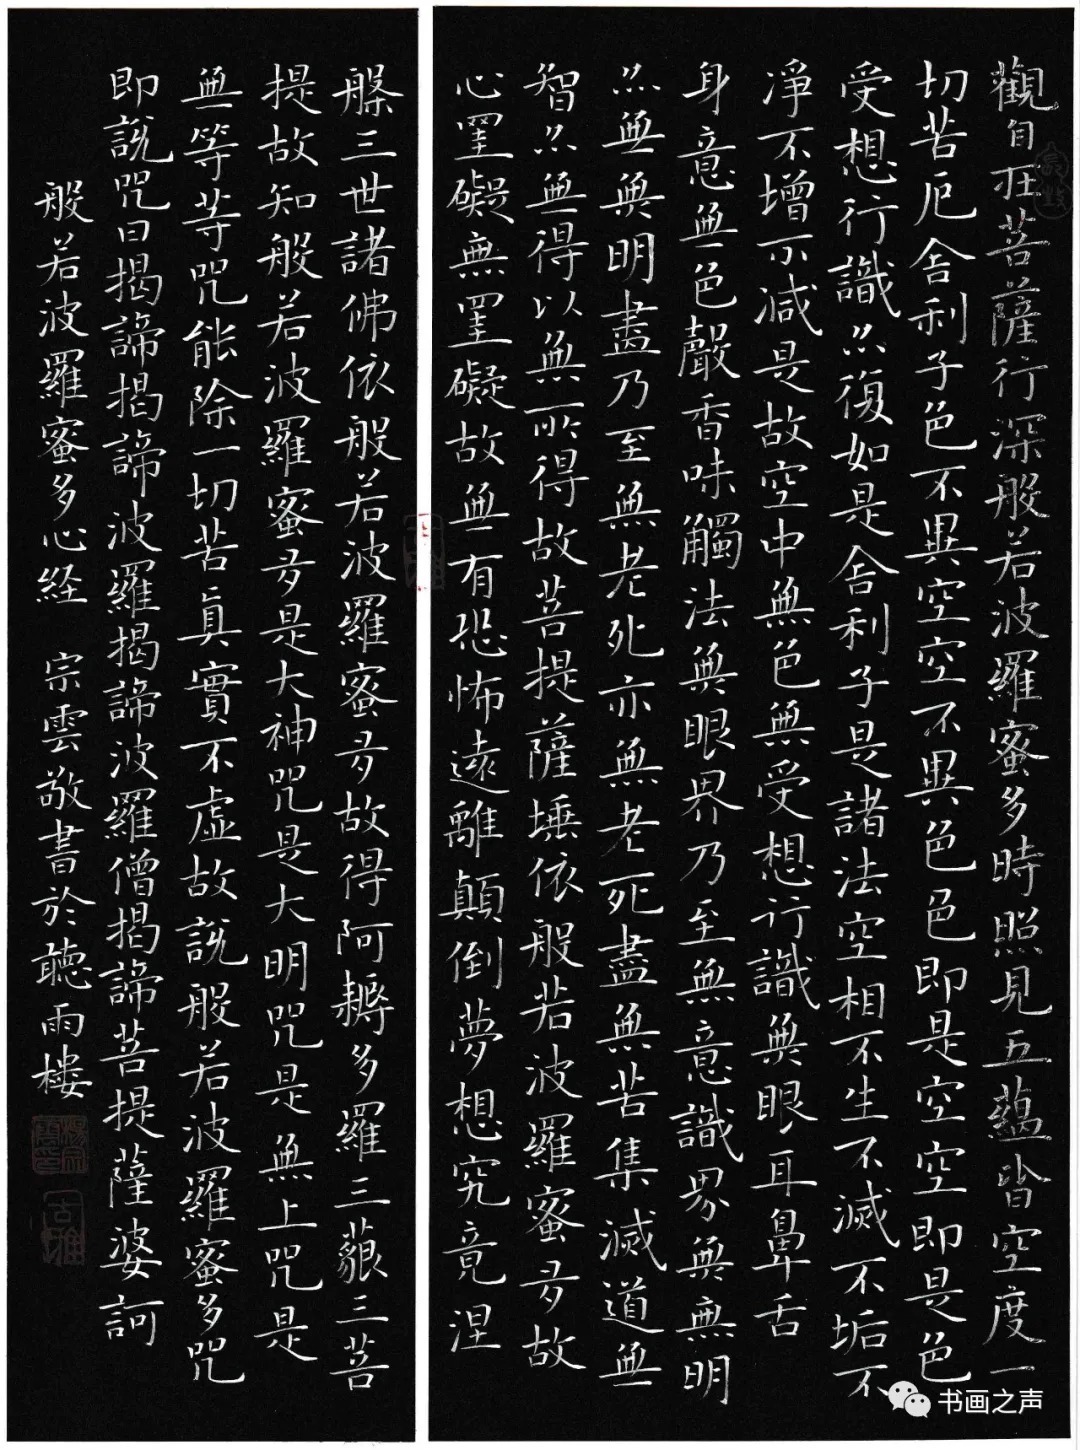 觀自在菩薩行深般若波羅蜜多時照見五蘊皆空度一
切苦厄舍利子色不異空空不異色色即是空空即是色
受想行識亦復如是舍利子是諸法空相不生不滅不垢不
淨不增不減是故空中無色無受想行識無眼耳鼻舌
身意無色聲香味觸法無眼界乃至無意識界無無明
亦無無明盡乃至無老死亦無老死盡無苦集滅道無
智亦無得以無所得故菩提薩埵依般若波羅蜜多故
心罣礙無罣礙故無有恐怖遠離顛倒夢想究竟涅
槃三世諸佛依般若波羅蜜多故得阿耨多羅三藐三菩
提故知般若波羅蜜多是大神咒是大明咒是無上咒是
無等等咒能除一切苦真實不虛故說般若波羅蜜多咒
即說咒曰揭諦揭諦波羅揭諦波羅僧揭諦菩提薩婆訶
般若波羅蜜多心経 宗雲敬書於聽雨樓
古雅
书画之声